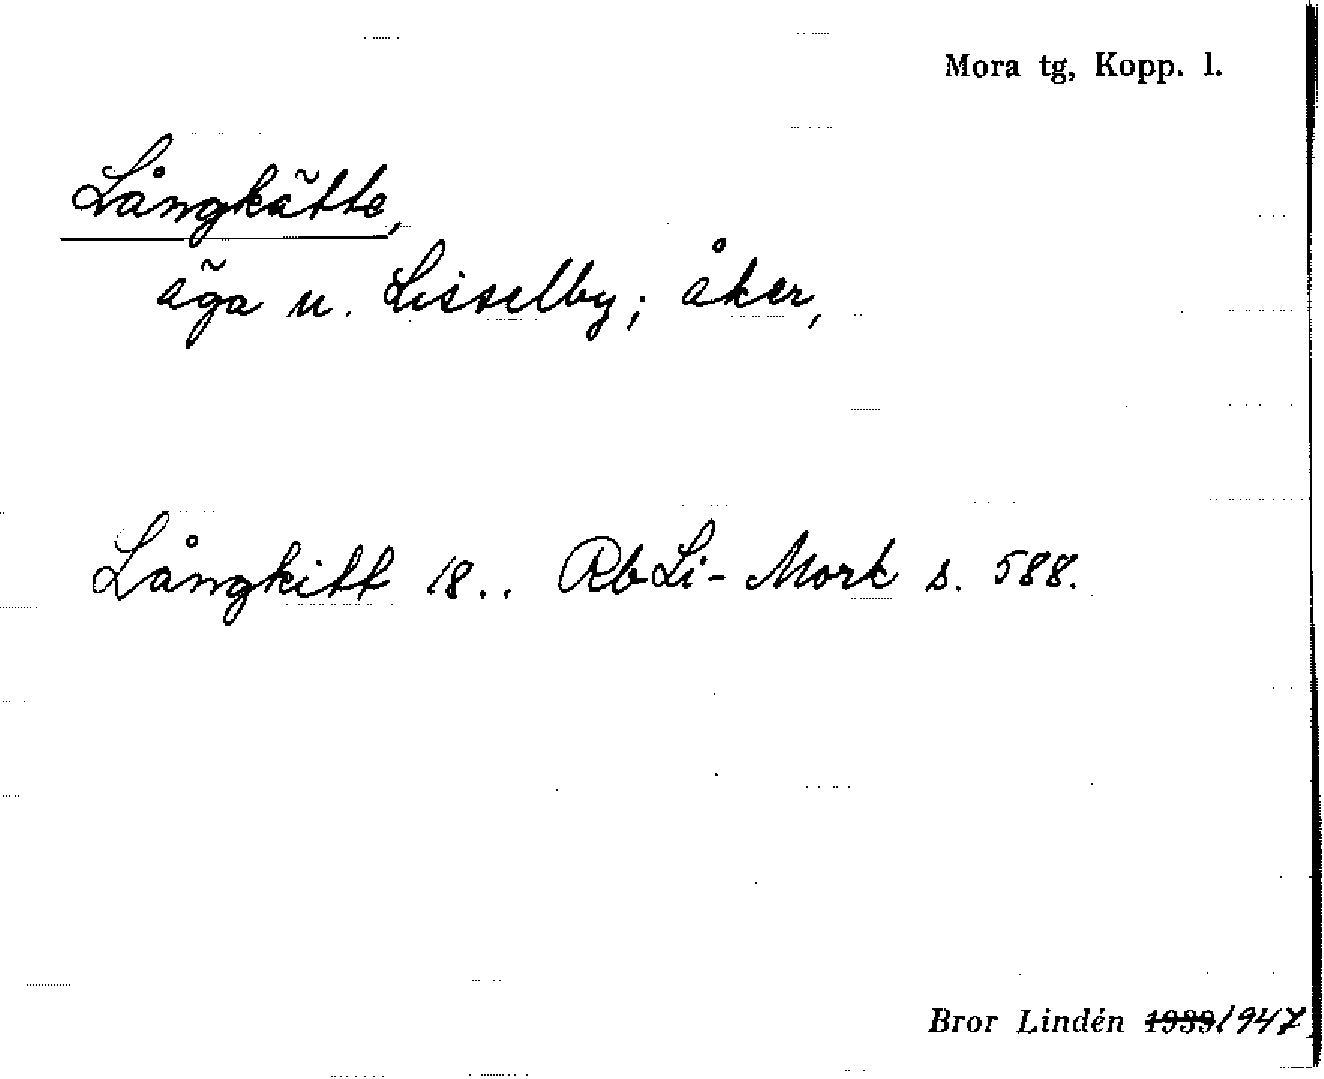 Mora tg, Kopp. l.
Långkätte,
äga u. Lisselby; åker,
Långkitt 18.. RbLi-Mork s. 588.
Bror Lindén 1939 1947